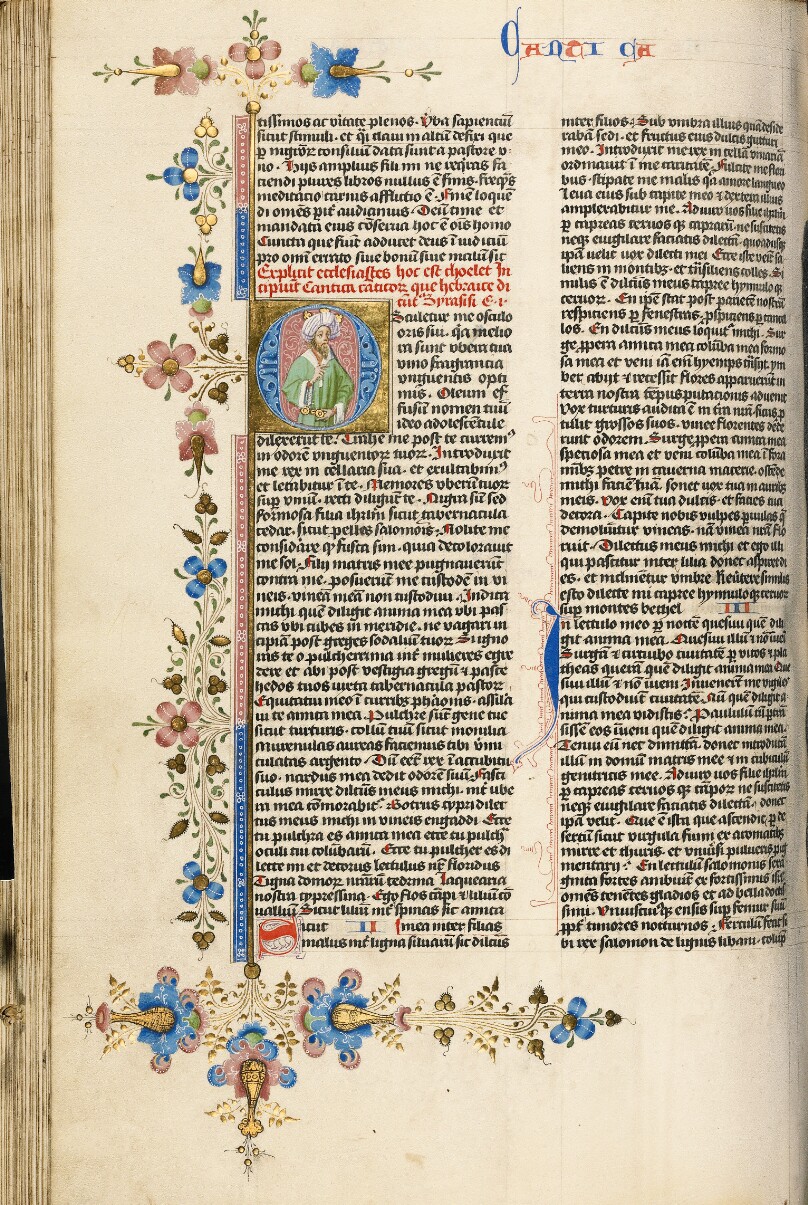 Cantica
tissimos ac vitate plenos. Uba sapientiū
sicut stimuli. et qi clavi in altū defixi que
p mgrōr consiliū data sunt a pastore v
no. Hijs amplius fili mi ne reqras fa
ciendi plures libros nullus ē finis. freqns
meditacio carnis afflictio ē. Finē loquē
di omēs pit audiamus. Deū time et
mandata eius cōserva hoc ē ois homo
Cuncta que fiūt adducet deus ī iudiciū
pro omi errato sive bonū sive malū sit
Explicit ecclesiastes hoc est choelet In
cipiūt Cantica cāticor que hebraice di
cūt Syrasisi C. i.
Osculetur me osculo
oris sui. qa melio
ra sunt ubera tua
vino fragrantia
vnguentis opti
mis. Oleum ef
fusū nomen tuū
ideo adolescētule
dilexerūt te. Trahe me post te currem9
in odorē vnguentorz tuor. Introduxit
me rex in cellaria sua. et exultabim9
et letabitur ī te. Memores vberū tuor
sup vinū. recti diligūt te. Nigra sū sed
formosa filia ihrlm sicut tabernacula
cedar. sicut pelles salomōis. Nolite me
considare qp fusca sim. quia decoloravit
me sol. Filij matris mee pugnaverūt
contra me. posuerūt me custodē in vi
neis. vineā meā non custodivi. Indica
michi quē diligit anima mea vbi pas
cas vbi cubes in meridie. ne vagari in
cipiā post greges sodaliū tuor. Si igno
ras te o pulcherrima int mulieres egre
dere et abi post vestigia gregū et pasce
hedos tuos iuxta tabernacula pastor.
Equitatui meo ī curribz phaōnis. assila
vi te amica mea. Pulchre sūt gene tue
sicut turturis. collū tuū sicut monilia
Murenulas aureas faciemus tibi vmi
culatas argento. Dū eēt rex ī accubitu
suo. nardus mea dedit odorē suū. Fasci
culus mirre dilcūs meus michi. int ube
ra mea cōmorabit. Botrus cypri dilec
tus meus michi in vineis engaddi. Ecce
tu pulchra es amica mea ecce tu pulchra
oculi tui colūbarū. Ecce tu pulcher es di
lecte mi et decorus lectulus nr floridus
Tigna domor nrārū cedrina laquearia
nostra cypressina. Ego flos cāpi et liliū cō
valliū Sicut liliū int spinas sic amica
Sicut II mea inter filias
malus int ligna silvarū sic dilcūs
inter filios. Sub vmbra illius quā deside
rabā sedi. et fructus eius dulcis gutturi
meo. Introduxit me rex in cellā vinariā
ordinavit ī me caritatē. Fulcite me flori
bus. stipate me malis qa amore langueo
Leva eius sub capite meo et dextera illius
amplexabitur me. Adiuro vos filie ihrlm
p capreas cervos qz caprarū. ne suscitetis
neqz evigilare faciatis dilectā. quoadusqz
ipa velit vox dilecti mei Ecce iste veīt sa
liens in montibz. et trāsiliens colles. Si
milis ē dilcūs meus capree hymulo qz
cervor. En ipē stat post parietē nostrū
respiciens p fenestras. pspiciens p cancel
los. En dilcūs meus loquit michi. Sur
ge. ppera amica mea colūba mea formo
sa mea et veni iā enī hyemps trāsijt. ym
ber abijt et recessit flores apparuerūt in
terra nostra tēpus putacionis advenit
Vox turturis audita ē in tra nrā. ficus p
tulit grossos suos. vinee florentes dede
runt odorem. Surge ppera amica mea
speciosa mea et veni colūba mea ī fora
mibz petre in caverna macerie. ostēde
michi faciē tuā. sonet vox tua in auribz
meis. Vox enī tua dulcis. et facies tua
decora. Capite nobis vulpes pvulas q
demoliūtur vineas. nā vinea nrā flo
ruit. Dilectus meus michi et ego illi
qui pascitur inter lilia donec aspiret di
es. et inclinētur vmbre Revertere similis
esto dilecte mi capree hymulo qz cervor
sup montes bethel III
In lectulo meo p noctē quesivi quē dili
git anima mea. Quesivi illū et nō inveni
Surgā et circuibo civitatē p vicos et pla
theas querā quē diligit anima mea Que
sivi illū et nō īveni Invenerēt me vigiles
qui custodiūt civitatē. Nū quē diligit a
nima mea vidistis. Paululū cū ptrā
sissē eos īveni quē diligit anima mea.
Tenui eū nec dimittā. donec introducā
illū in domū matris mee et in cubiculū
genitricis mee. Adiuro vos filie ihrlm
p capreas cervos qz cāpor ne suscitetis
neqz evigilare faciatis dilectā. donec
ipa velit. Que ē ista que ascendit p de
sertū sicut virgula fumi ex aromatibz
mirre et thuris. et vnivsi pulveris pig
mentarij. En lectulū salomonis sexa
ginta fortes ambiūt ex fortissimis isrl
omēs tenētes gladios et ad bella docti
simi. Vniuscuiusqz ensis sup femur suū
ppt timores nocturnos. Ferculū fecit si
bi rex salomon de lignis libani. colūp